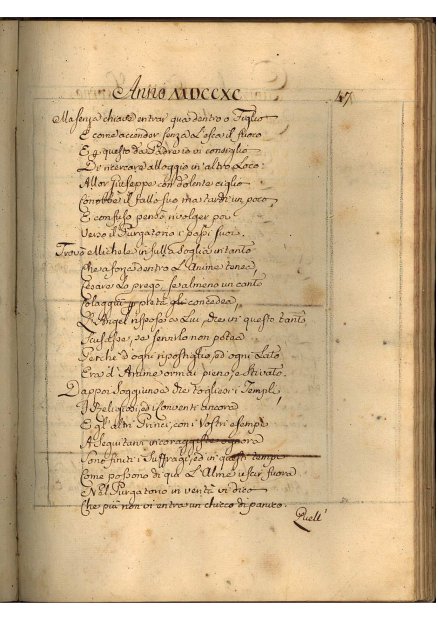 Anno MDCCXC
47
Ma senza chiave entrar qua dentro o Figlio
E come accender senza l'esca il fuoco
E p questo da Padre io vi consiglio
Di ricercare alloggio in altro Loco:
Allor Giuseppe con dolente ciglio
Conobbe il fallo suo ma tardi un poco
E confuso pensò rivolger poi
Verso il Purgatorio i passi suoi.
Trovò Michele in sulla soglia intanto
Che a forza dentro l'Anime tenea
Cesare Lo pregò, se almeno un canto
Colaggiù p pietà gli concedea,
L'Angel rispose a Lui, dice in questo tanto
Scusasse, se servirlo non potea
Perchè d'ogni ripostiglio, ed ogni Lato
Era d'Anime ormai pieno, e stivato.
Dappoi soggiunse che togliesi i Templi,
I Religiosi, ed i Conventi ancora
E gl'altri Principi, con i vostri esempi
A seguitarvi
Sono finiti i Suffragi, ed in questi tempi
Come possono di qui l'Alme uscir fuora
Nel Purgatorio in verità vi dico
Che più non vi entra un chicco di panico.
Quell'